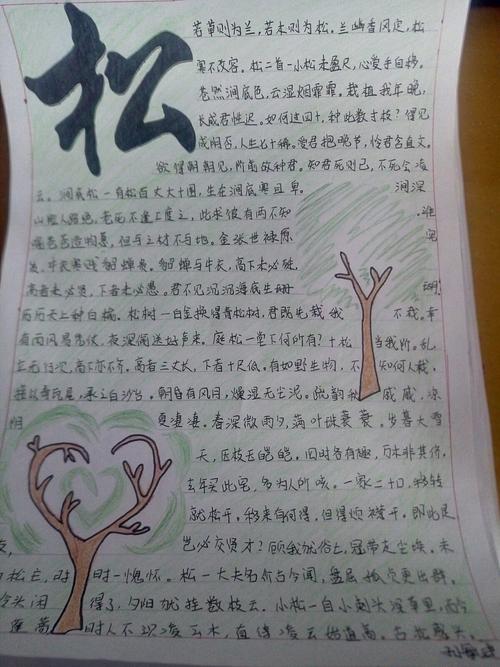 松
若草则为兰，若木则为松。兰幽香风定，松
寒不改容。松二首一小松未盈尺，心爱手自移。
苍然涧底色，云湿烟霏霏。栽植我年晚，
长成君性迟。如何过四十，种此数寸枝？得见
成阴否，人生七十稀。爱君抱晚节，怜君含直文。
欲得朝朝见，阶前故种君。知君死则已，不死会凌
云。涧底松一有松百尺大十围，生在涧底寒且卑。 涧深
山险人路绝，老死不逢工度之。此求彼有两不知 谁
喻苍苍造物意，但与之材不与地。金张世禄原
黄，牛衣寒贱貂蝉贵。貂蝉与牛衣，高下未必贤，
高者未必贤，下者未必愚。君不见沉沉海底生珊 瑚
历历天上种白榆。松树一白金换得青松树，君既先栽我 不栽。幸
有西风易凭仗，夜深偷送好声来。庭松一堂下何所有？十松 当我阶。乱
立无行次，高下亦不齐。高者三丈长，下者十尺低。有如野生物，不 知何人栽。
接以青瓦屋，承之白沙台。朝昏有风月，燥湿无尘泥。疏韵秋 槭槭，凉
阴 夏凄凄。春深微雨夕，满叶珠蓑蓑。岁暮大雪
天，压枝玉皑皑。四时各有趣，万木非其侪。
去年买此宅，多为人所咳。一家二十口，移转
就松下。移来有何得，但得烦襟开。即此是
岂必交贤才？顾我犹俗士，冠带走尘埃。未
松主，时 时一愧怀。松一大夫名价古今闻，盘屈孤贞更出群。
得了，夕阳犹挂数枝云。小松一自小刺头深草里，而今
时人不识凌云木，直待凌云始道高。